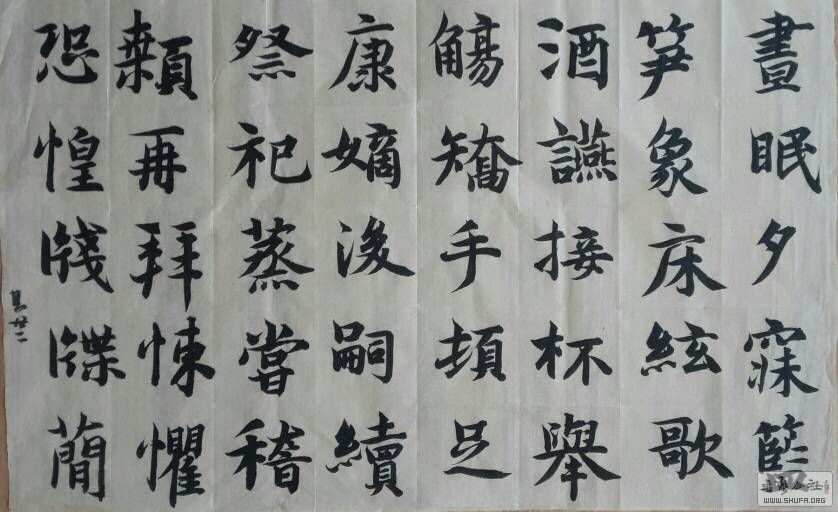 晝眠夕寐籃
笋象床絃歌
酒讌接杯舉
觴矯手頓足
康嫡後嗣續
祭祀蒸嘗稽
顙再拜悚懼
恐惶牋牒簡
其廿二
書法公社
WWW.SHUFA.ORG